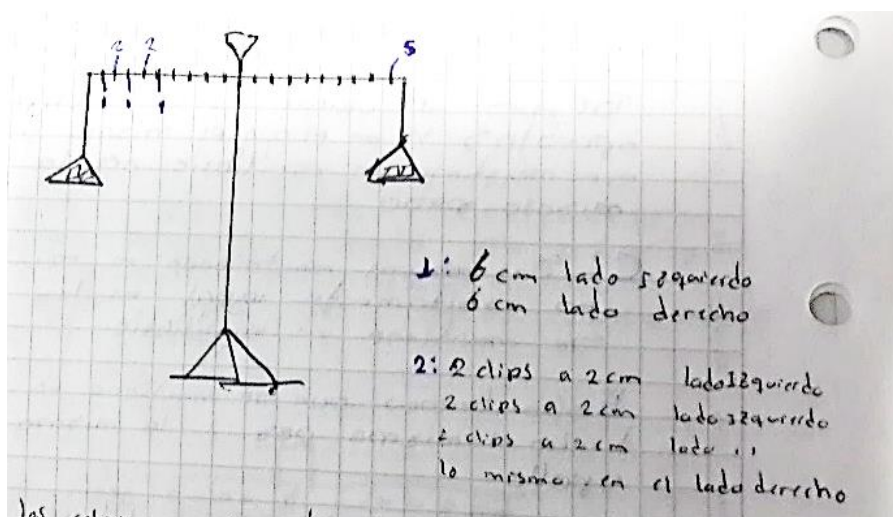 2 2 5
1: 6 cm lado izquierdo
6 cm lado derecho
2: 2 clips a 2 cm lado Izquierdo
2 clips a 2 cm lado izquierdo
2 clips a 2 cm lado ,,
lo mismo en el lado derecho
los